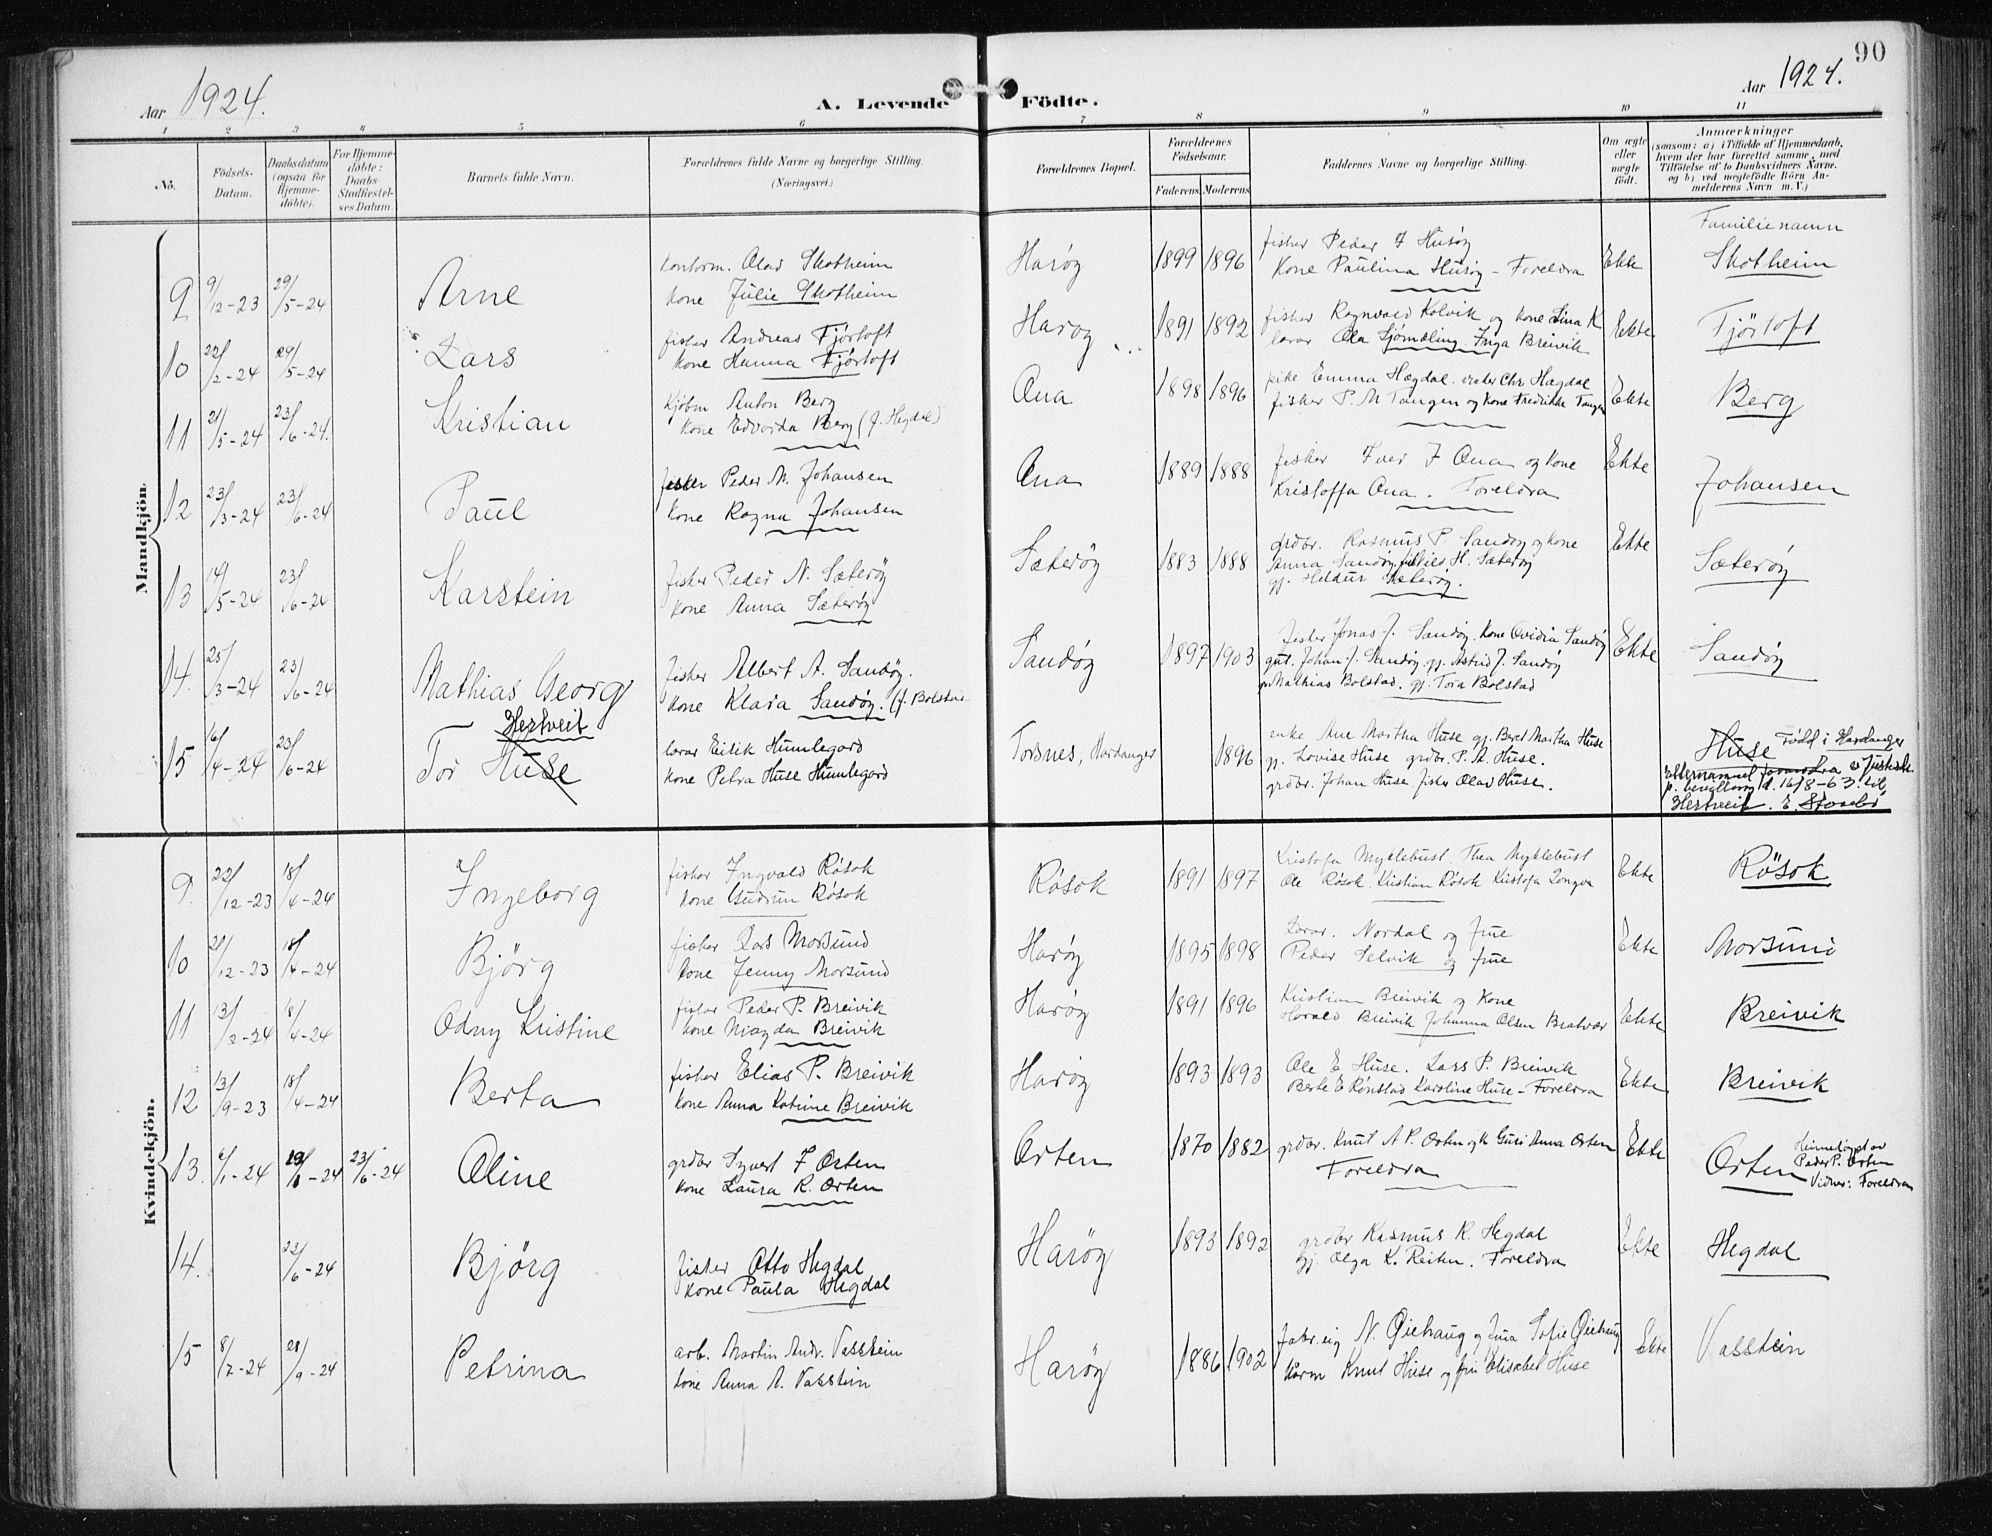 90
Aar 1924.
A. Levende Födte.
Aar 1924.
1 2 3 4 5 6 7 8 9 10 11
No.
Födsels-Datum.
Daabsdatum (ogsaa for Hjemme-döbte).
For Hjemme-döbte: Daabs-Stadfæstel-ses Datum.
Barnets fulde Navn.
Forældrenes fulde Navne og borgerlige Stilling.
(Næringsvei.)
Forældrenes Bopæl.
Forældrenes Födselsaar.
Faderens Moderens
Faddernes Navne og borgerlige Stilling.
Om ægte eller uægte födt.
Anmærkninger
(saasom: a) i Tilfælde af Hjemmedaab, hvem der har forrettet samme, med Tilföielse af to Daabsvidners Navne, og b) ved uegtefödte Börn An-melderens Navn m. V.)
Familienamn
Mandkjön.
9 9/12-23 29/5-24 Arne
kontorm. Olav Skotheim
kone Julie Skotheim
Harøy 1899 1896
fisker Peder I Husøy
kone Paulina Husøy - Foreldra
Ekte Skotheim
10 22/2-24 29/5-24 Lars
fisker Andreas Fjørtoft
kone Hanna Fjørtoft
Harøy 1891 1892
fisker Ragnvald Kolvik og kone Lina K
lærar Ola Sjømæling Inga Breivik
Ekte Fjørtoft
11 21/5-24 23/6-24. Kristian
Kjøbm Anton Berg
kone Edvarda Berg (f. Hegdal)
Ona 1898 1896
pike Emma Hægdal. Chr Hægdal
fisker P. M Tangen og kone Fredrikke Tangen
Ekte Berg
12 23/3-24 23/6-24 Paul
fisker Peder M. Johansen
kone Ragna Johansen
Ona 1889 1888
fisker Iver I Ona og kone
Kristoffa Ona. Foreldra
Ekte Johansen
13 14/5-24 23/6-24 Karstein
fisker Peder N. Sæterøy
kone Anna Sæterøy
Sæterøy 1883 1888
grdbr. Rasmus P. Sandøy og kone
Anna Sandøy H. Sæterøy
gj. Heldur Sæterøy.
Ekte Sæterøy
14. 25/3-24 23/6-24 Mathias Georg
fisker Albert A. Sandøy.
kone Klara Sandøy. (f. Bolstad
Sandøy 1897 1903
fisker Jonas J. Sandøy. kone Ovidia Sandøy
gut. Johan J. Sandøy. gj. Astrid J. Sandøy
Mathias Bolstad. gj. Tora Bolstad
Ekte Sandøy
15 16/4-24 23/6-24 Tor Huse Hestveit
lærar Eilik Humlegard
kone Petra Huse Humlegard
Torsnes, Hardanger 1896
enke Ane Martha Huse gj. Beret Martha Huse
gj. Lovise Huse grdbr. P. A. Huse.
grdbr. Johan Huse. fisker Olav Huse.
Huse Fødd i Hardanger
Etternamnet forandra
p. bevilling d. 16/8-63. til
Hestveit.
Kvindekjön.
9. 22/12-23 18/4-24 Ingeborg
fisker Ingvald Røsok
kone Gudrun Røsok
Røsok 1891 1897
Kristofa Myklebust. Thea Myklebust
Ole Røsok Kristian Røsok Kristofa Longva
Ekte Røsok
10 20/12-23 18/4-24 Bjørg
fisker Lars Morsund
kone Jenny Morsund
Harøy 1895 1898
Lærar. Nordal og frue
Peder Selvik og frue
Ekte Morsund
11 13/2-24 18/4-24 Odny Kristine
fisker Peder P. Breivik
kone Magda Breivik
Harøy 1891 1896
Kristian Breivik og kone
Harald Breivik Johanna Olsen Bratvær
Ekte Breivik
12 13/9-23 18/4-24 Berta
fisker Elias P. Breivik
kone Anna Katrine Breivik
Harøy 1893 1893
Ole E Huse. Lars P. Breivik
Berte E Rønstad Karoline Huse - Foreldra
Ekte Breivik
13. 6/1-24 23/6-24 Oline
grdbr Syvert I Orten
kone Laura R. Orten
Orten 1870 1882
grdbr. Knut A P. Orten og k Guri Anna Orten
Foreldra
Ekte Orten
Heimedøypt av
Peder P. Orten
Vidner: Foreldra
14. 23/6-24 Bjørg
fisker Otto Hegdal
kone Paula Hegdal
Harøy 1893 1892
grdbr Rasmus K. Hegdal
gj. Olga K. Reiten. Foreldra
Ekte Hegdal
15 8/7-24 28/9-24 Petrina
arb. Martin Andr. Vasstein
kone Anna A. Vasstein
Harøy 1886 1902
fabr. eig N. Øiehaug og frua Sofie Øiehaug
Knut Huse og fru Elisabet Huse
Ekte Vasstein